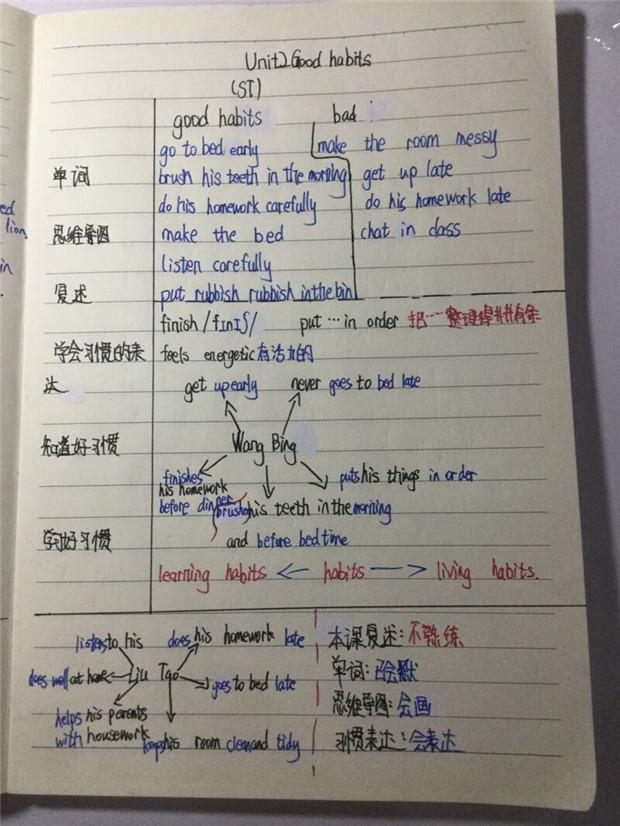 Unit2 Good habits
(ST)
good habits
bad
go to bed early
make the room messy
单词
brush his teeth in the morning
get up late
do his homework carefully
do his homework late
思维导图
make the bed
chat in class
listen carefully
复述
put rubbish rubbish in the bin
finish /fInIʃ/
put … in order 把……整理得井井有条
学会习惯的表
达
feels energetic 有活力的
get up early
never goes to bed late
知道好习惯
Wang Bing
finishes
his homework
before dinner
puts his things in order
brushes his teeth in the morning
学好习惯
and before bedtime
learning habits ← habits → living habits.
listens to his
does his homework late
does well at home
Liu Tao
goes to bed late
helps his parents
with housework
keeps his room clean and tidy
本课复述: 不熟练
单词: 会默
思维导图: 会画
习惯表达: 会表达
ed
lion
in